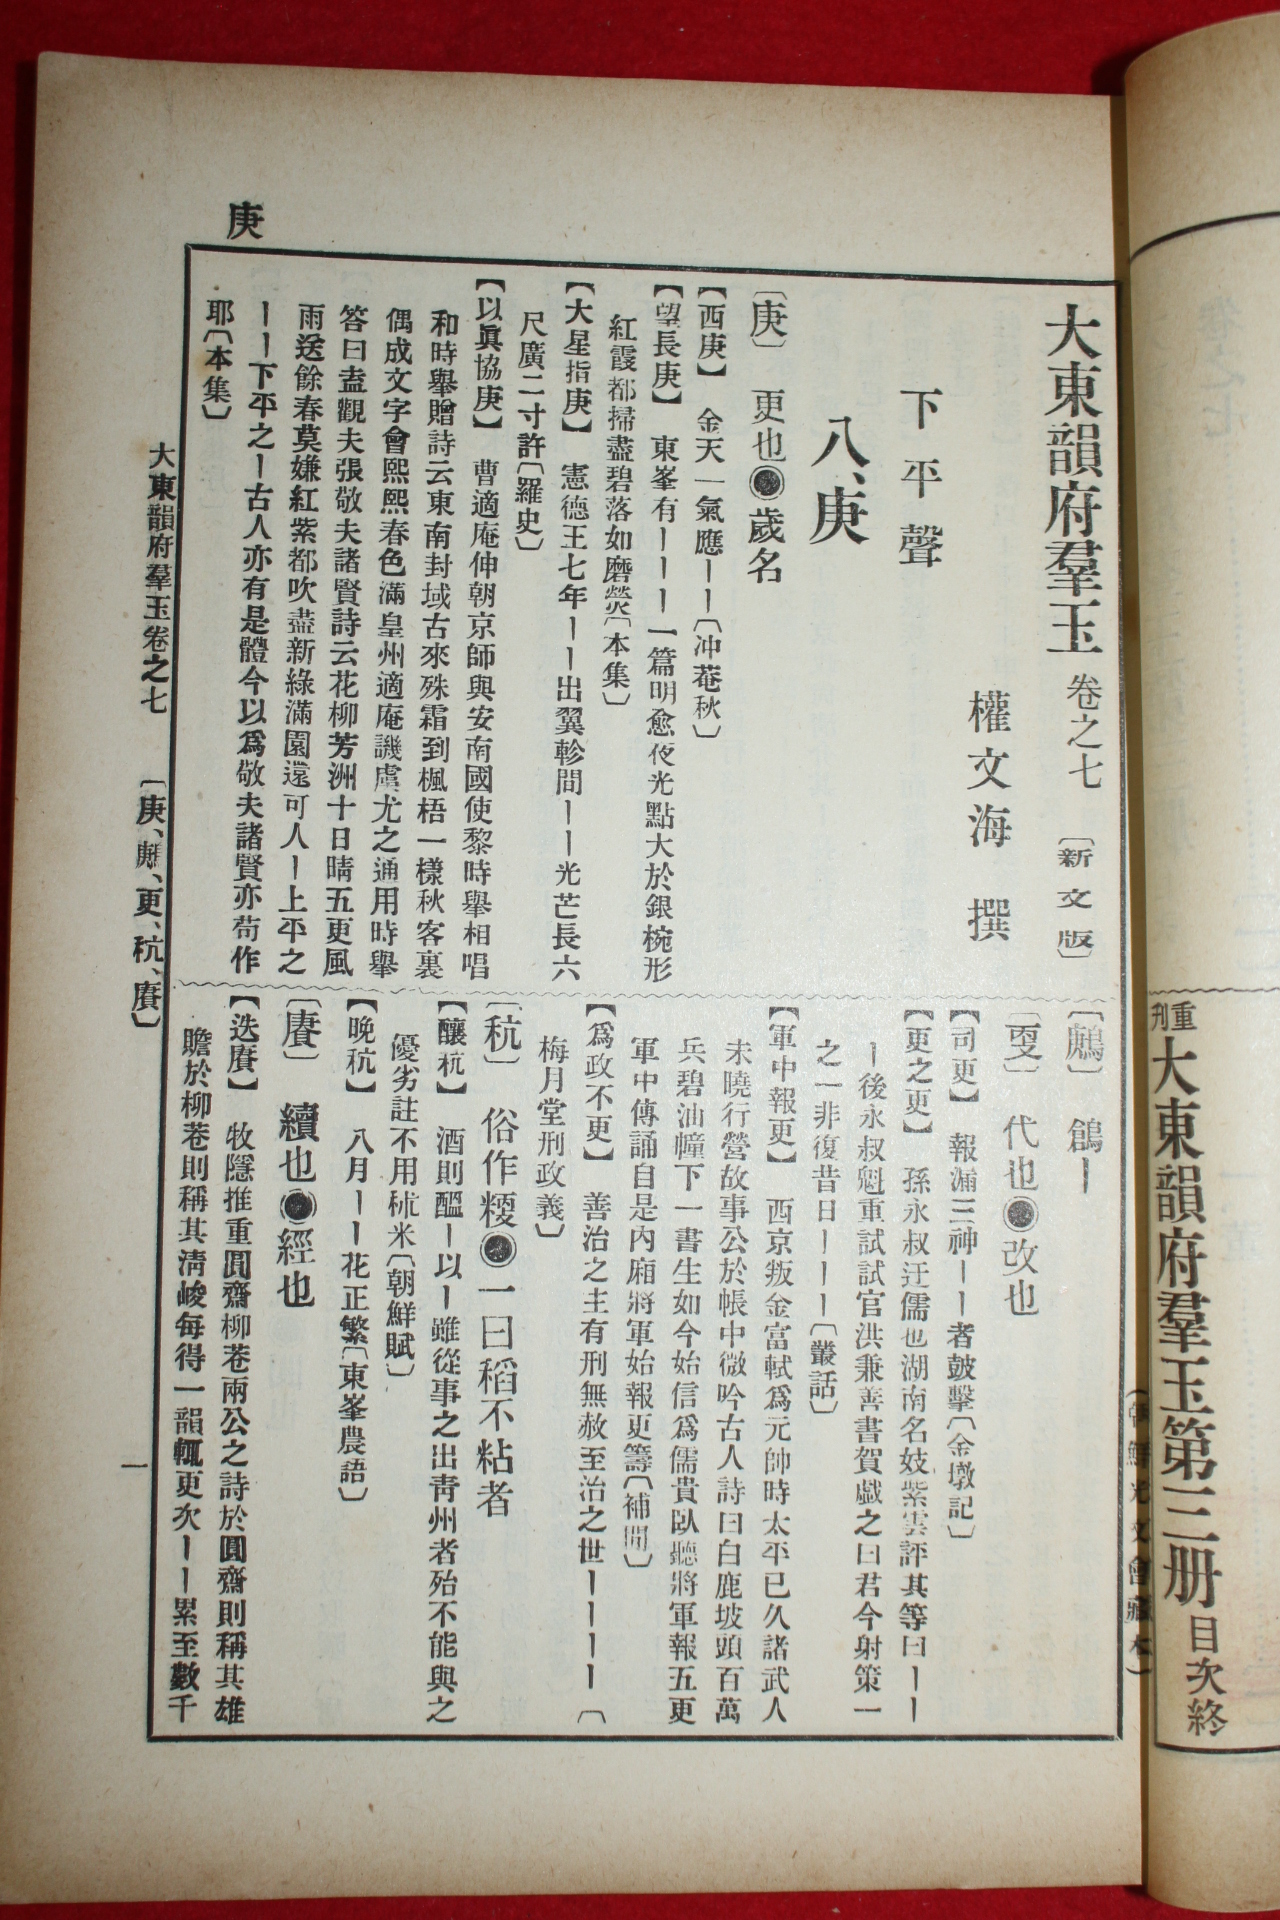 重刊 大東韻府羣玉第三册 目次終
大東韻府羣玉 卷之七 〔新文版〕
權文海 撰
下平聲
八、庚
〔庚〕 更也●歲名
【西庚】 金天一氣應ーー〔冲菴秋〕
【望長庚】 東峯有ーーー一篇明愈夜光點大於銀椀形
紅霞都掃盡碧落如磨熒〔本集〕
【大星指庚】 憲德王七年ーー出翼軫間ーー光芒長六
尺廣二寸許〔羅史〕
【以眞協庚】 曹適庵伸朝京師與安南國使黎時舉相唱
和時舉贈詩云東南封域古來殊霜到楓梧一樣秋客裏
偶成文字會熙熙春色滿皇州適庵譏虞尤之通用時舉
答曰盍觀夫張敬夫諸賢詩云花柳芳洲十日晴五更風
雨送餘春莫嫌紅紫都吹盡新綠滿園還可人ー上平之
ーー下平之ー古人亦有是體今以爲敬夫諸賢亦苟作
耶〔本集〕
〔鶊〕 鶬ー
〔㪅〕 代也●改也
【司更】 報漏三神ーー者鼓擊〔金墩記〕
【更之更】 孫永叔迂儒也湖南名妓紫雲評其等曰ーー
ー後永叔魁重試試官洪兼善書賀戱之曰君今射策一
之一非復昔日ーーー〔叢話〕
【軍中報更】 西京叛金富軾爲元帥時太平已久諸武人
未曉行營故事公於帳中微吟古人詩曰白鹿坡頭百萬
兵碧油幢下一書生如今始信爲儒貴臥聽將軍報五更
軍中傳誦自是內廂將軍始報更籌〔補閒〕
【爲政不更】 善治之主有刑無赦至治之世ーーーー〔
梅月堂刑政義〕
〔秔〕 俗作粳●一曰稻不粘者
【釀秔】 酒則醞ー以ー雖從事之出靑州者殆不能與之
優劣註不用秫米〔朝鮮賦〕
【晚秔】 八月ーー花正繁〔東峯農語〕
〔賡〕 續也●經也
【迭賡】 牧隱推重圓齋柳巷兩公之詩於圓齋則稱其雄
贍於柳巷則稱其淸峻每得一韻輒更次ーー累至數千
庚
大東韻府羣玉卷之七 〔庚、鶊、更、秔、賡〕 一